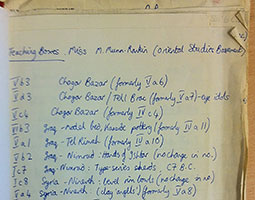 Teaching Boxes. Miss M. Munn-Rankin (Oriental Studies Basement)
V b3 Chagar Bazar (formerly V a 6)
V d3 Chagar Bazar / Tell Brac (formerly V a7) - eye idols
V c4 Chagar Bazar (formerly IV c 4)
III b3 Iraq - model bed, Kassite pottery (formerly IV a 11)
V a1 Iraq - Tel Rimah (formerly IV a 10)
V b2 Iraq - Nimrud: Hands of Ishtar (no change in no.)
I c7 Iraq - Nimrud: Type-series sherds, C7 B.C.
I c8 Syria - Nineveh: level IV bowls (no change in no)
V a4 Syria - Nineveh: clay 'anglis' (formerly V a8)